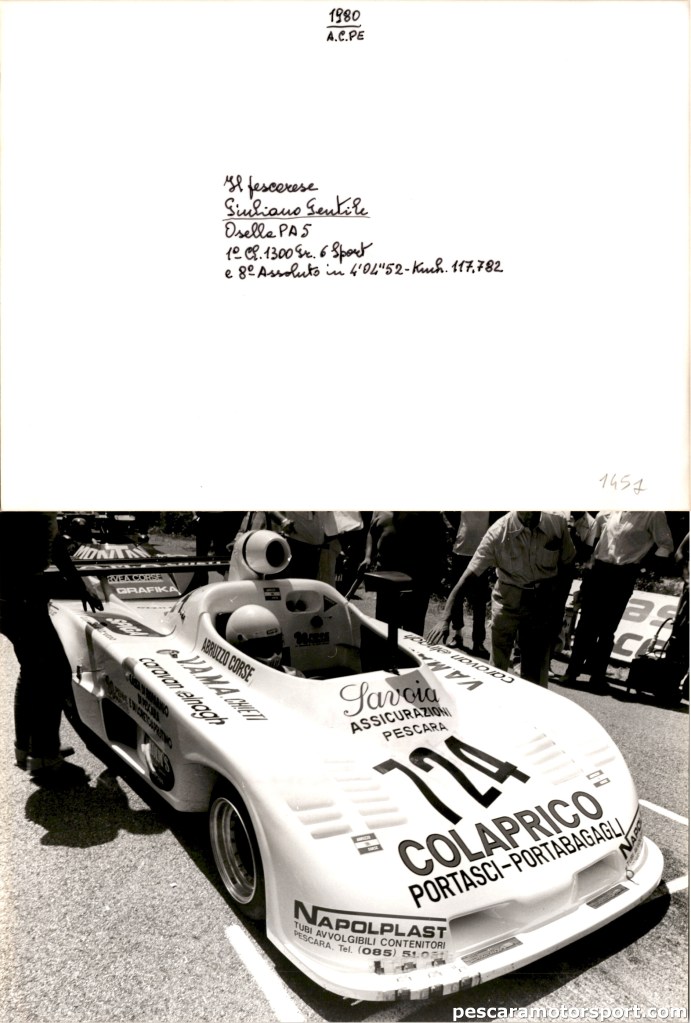 1980
A.C.PE
Il pescarese
Giuliano Gentile
Osella PA5
1º Cl. 1300 Gr. 6 Sport
e 8º Assoluto in 4'04"52-Kmh. 117,782
1451
MONTAN
GRAFIKA
ABRUZZO CORSE
VAMA CHIETI
caravan elnagh
VAMA
caravan elnagh
Savoia
ASSICURAZIONI
PESCARA
724
COLAPRICO
PORTASCI-PORTABAGAGLI
NAPOLPLAST
TUBI AVVOLGIBILI CONTENITORI
PESCARA. Tel. (085)
pescaramotorsport.com